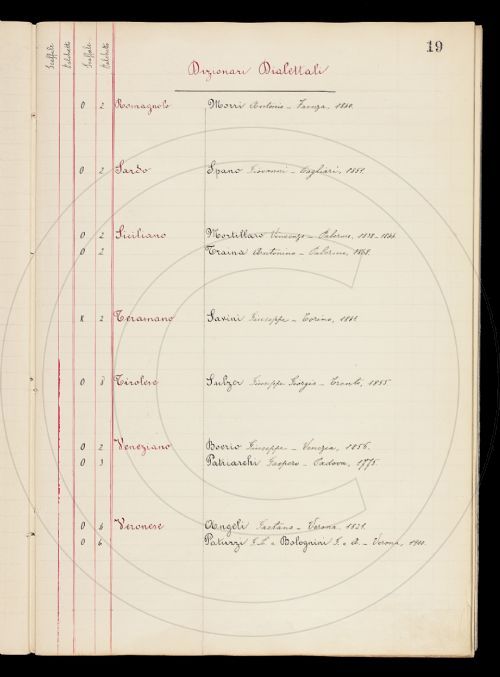 19
Scaffale Palchetto Scaffale Palchetto
Dizionari Dialettali
O 2 Romagnolo Morri Antonio - Faenza, 1840.
O 2 Sardo Spano Giovanni - Cagliari, 1851.
O 2 Siciliano Mortillaro Vincenzo - Palermo, 1838-1844.
O 2 Traina Antonino - Palermo, 1868.
2 Teramano Savini Giuseppe - Torino, 1881.
O 8 Tirolese Sulzer Giuseppe Giorgio - Trento, 1855.
O 2 Veneziano Boerio Giuseppe - Venezia, 1856.
O 3 Patriarchi Gaspero - Padova, 1775.
O 6 Veronese Angeli Gaetano - Verona, 1821.
O 6 Patuzzi G. L. e Bolognini G. e A. - Verona, 1900.